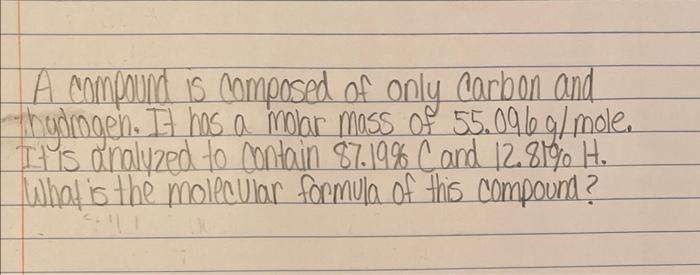 A compound is composed of only carbon and
hydrogen. It has a molar mass of 55.096 g/mole.
It is analyzed to contain 87.19% C and 12.81% H.
What is the molecular formula of this compound?